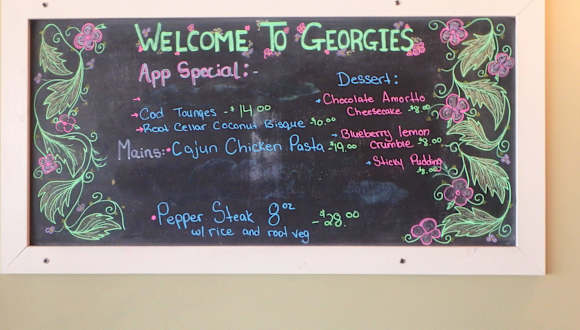 WELCOME TO GEORGIES
App Special:-
Cod Tounges - $14.00
Root Cellar Coconut Bisque $10.00
Mains: • Cajun Chicken Pasta - $19.00
• Pepper Steak 8oz - $28.00
w/ rice and root veg
Dessert:
Chocolate Amortto
Cheesecake $8.00
Blueberry lemon
Crumble $8.00
Sticky Pudding
$8.00